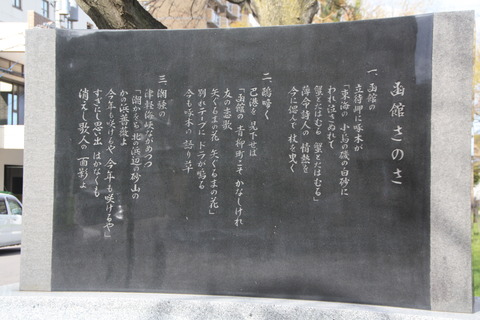 函館さのさ
一、函館の
立待岬に啄木が
「東海の 小島の磯の白砂に
われ泣きぬれて
蟹とたはむる 蟹とたはむる」
薄命詩人の 情熱を
今に偲んで 波も哭く
二、鷗啼く
巴港を 見下せば
「函館の 青柳町こそ かなしけれ
友の恋歌
矢ぐるまの花 矢ぐるまの花」
別れテープに ドラが鳴る
今も啄木の 語り草
三、潮騒の
津軽海峡 なかめつつ
「潮かをる 北の浜辺の 砂山の
かの浜薔薇よ
今年も咲けるや 今年も咲けるや」
すぎにし思い出 はかなくも
消えし歌人の 面影よ